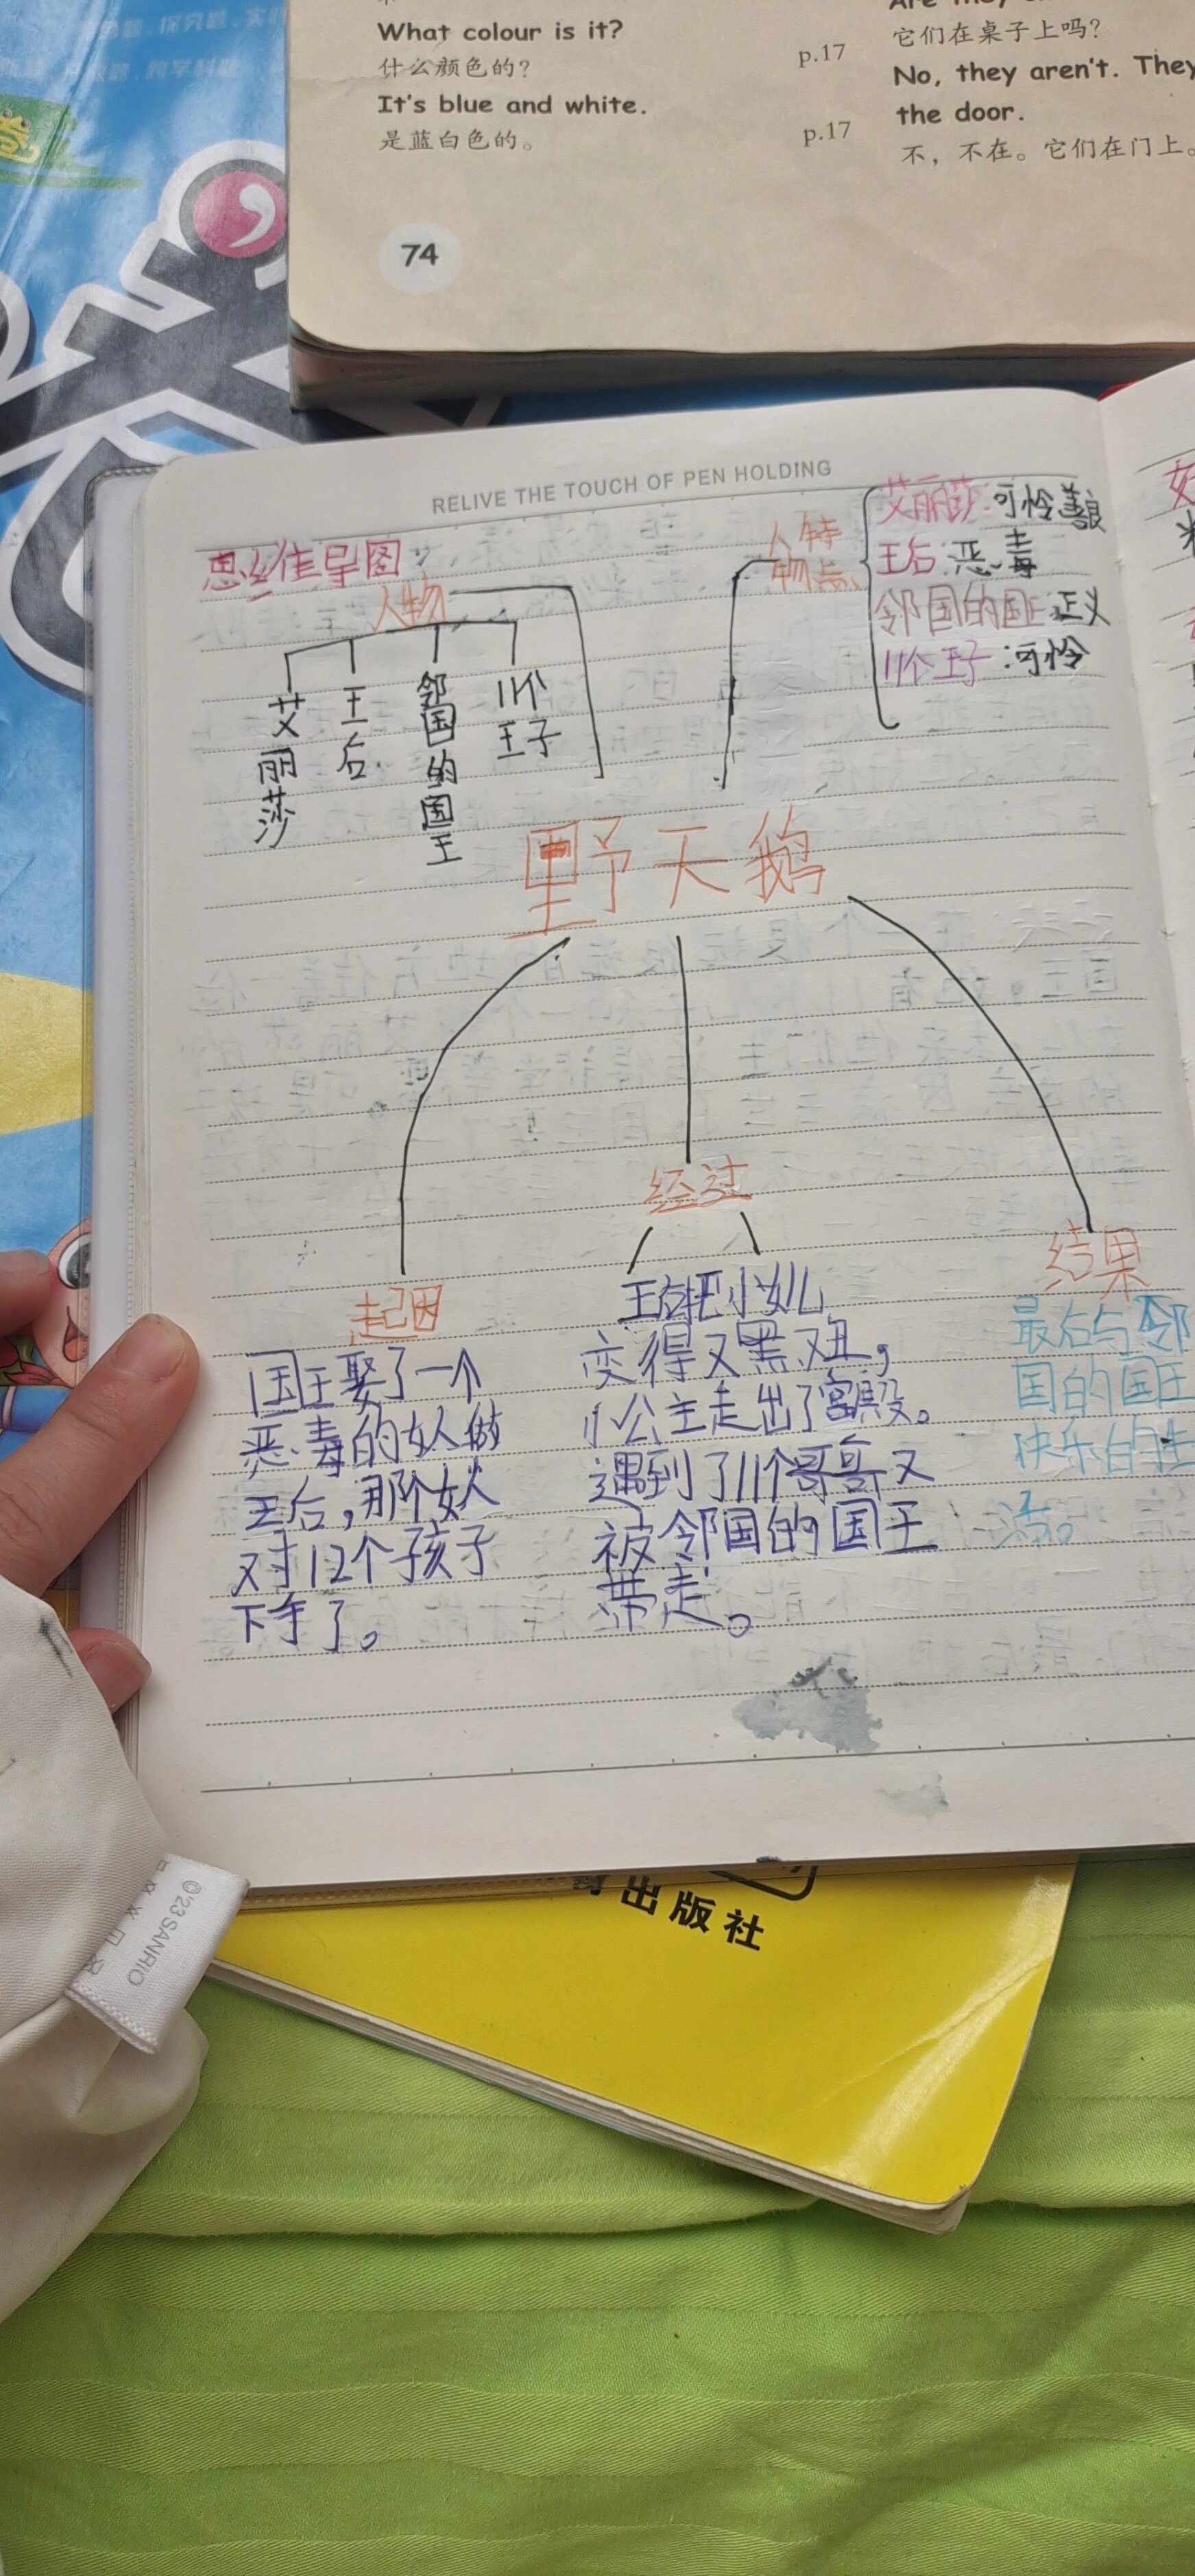 What colour is it?
什么颜色的?
It's blue and white.
是蓝白色的。
74
p.17
p.17
它们在桌子上吗?
No, they aren't. They
the door.
不，不在。它们在门上。
RELIVE THE TOUCH OF PEN HOLDING
思维导图
人物
艾丽莎
王后
邻国的国王
11个
王子
人物
特点
艾丽莎:可怜善良
王后:恶毒
邻国的国王:正义
11个王子:可怜
野天鹅
起因
国王娶了一个
恶毒的女人做
王后,那个女人
对12个孩子
下手了。
经过
王后把小女儿
变得又黑又丑,
小公主走出了宫殿。
遇到了11个哥哥又
被邻国的国王
带走。
结果
最后与邻
国的国王
快乐的生
活。
出版社
©'23 SANRIO